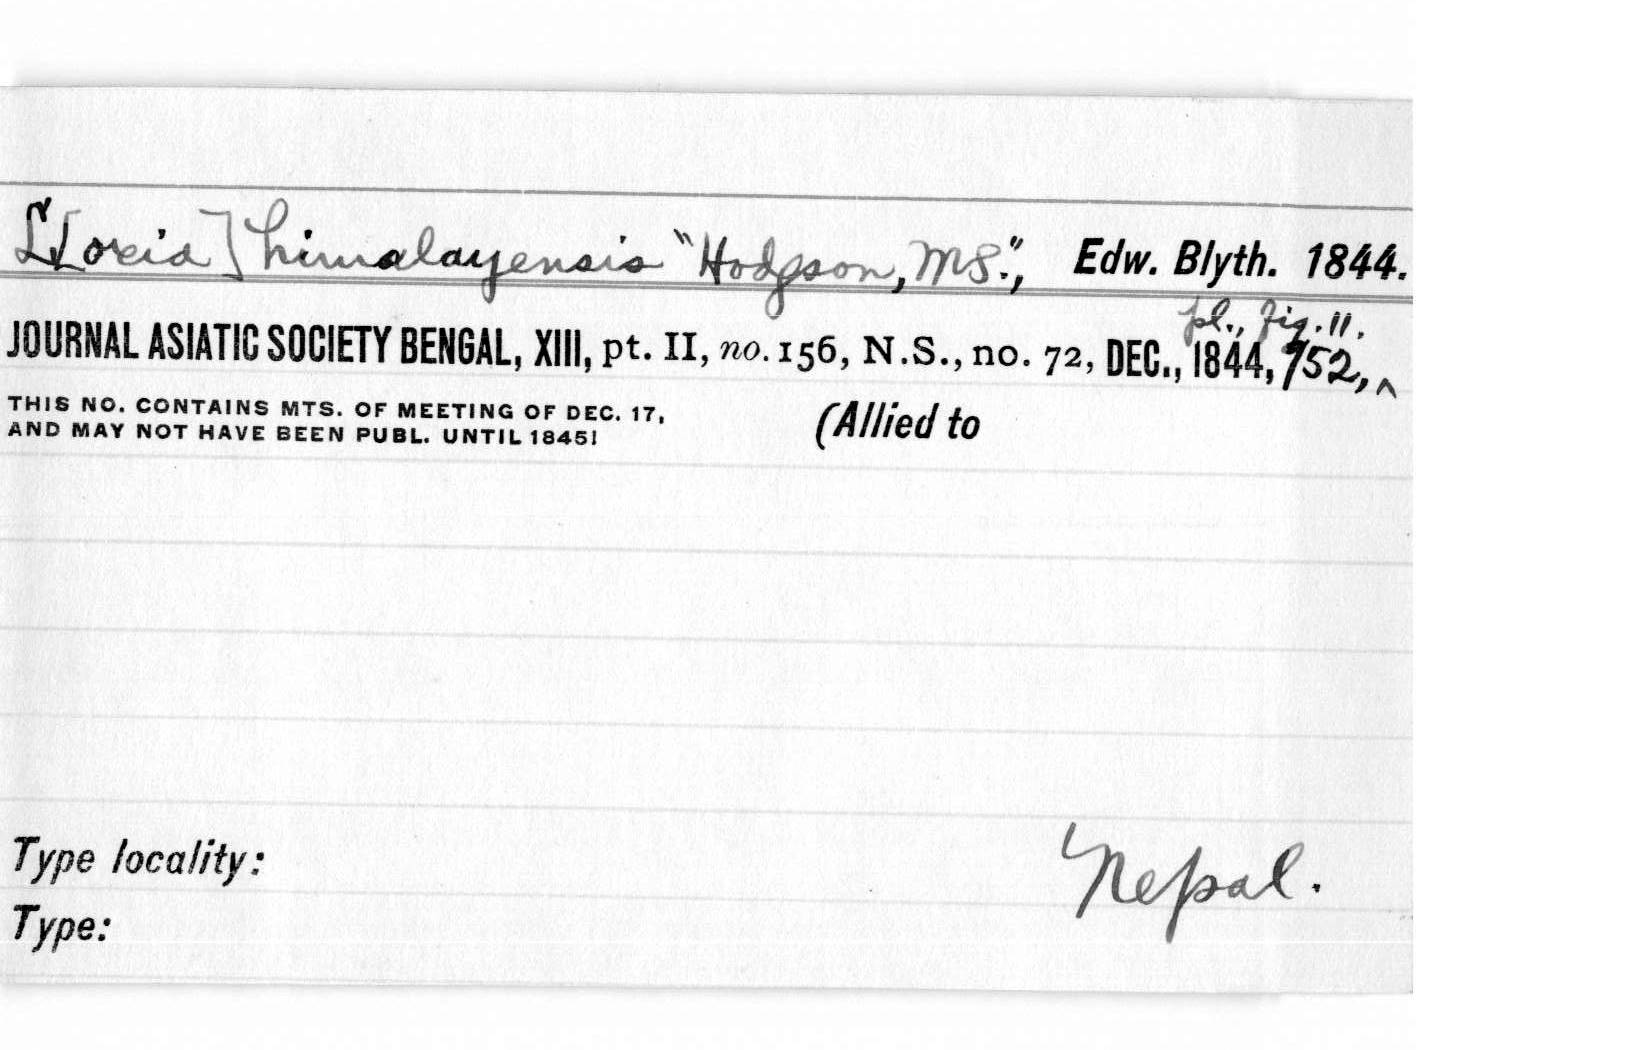 L[oxia] himalayensis "Hodgson, MS.", Edw. Blyth. 1844.
pl., fig. 11.
JOURNAL ASIATIC SOCIETY BENGAL, XIII, pt. II, no. 156, N.S., no. 72, DEC., 1844, 952, ^
THIS NO. CONTAINS MTS. OF MEETING OF DEC. 17,
AND MAY NOT HAVE BEEN PUBL. UNTIL 1845!
(Allied to
Type locality: Nepal.
Type: